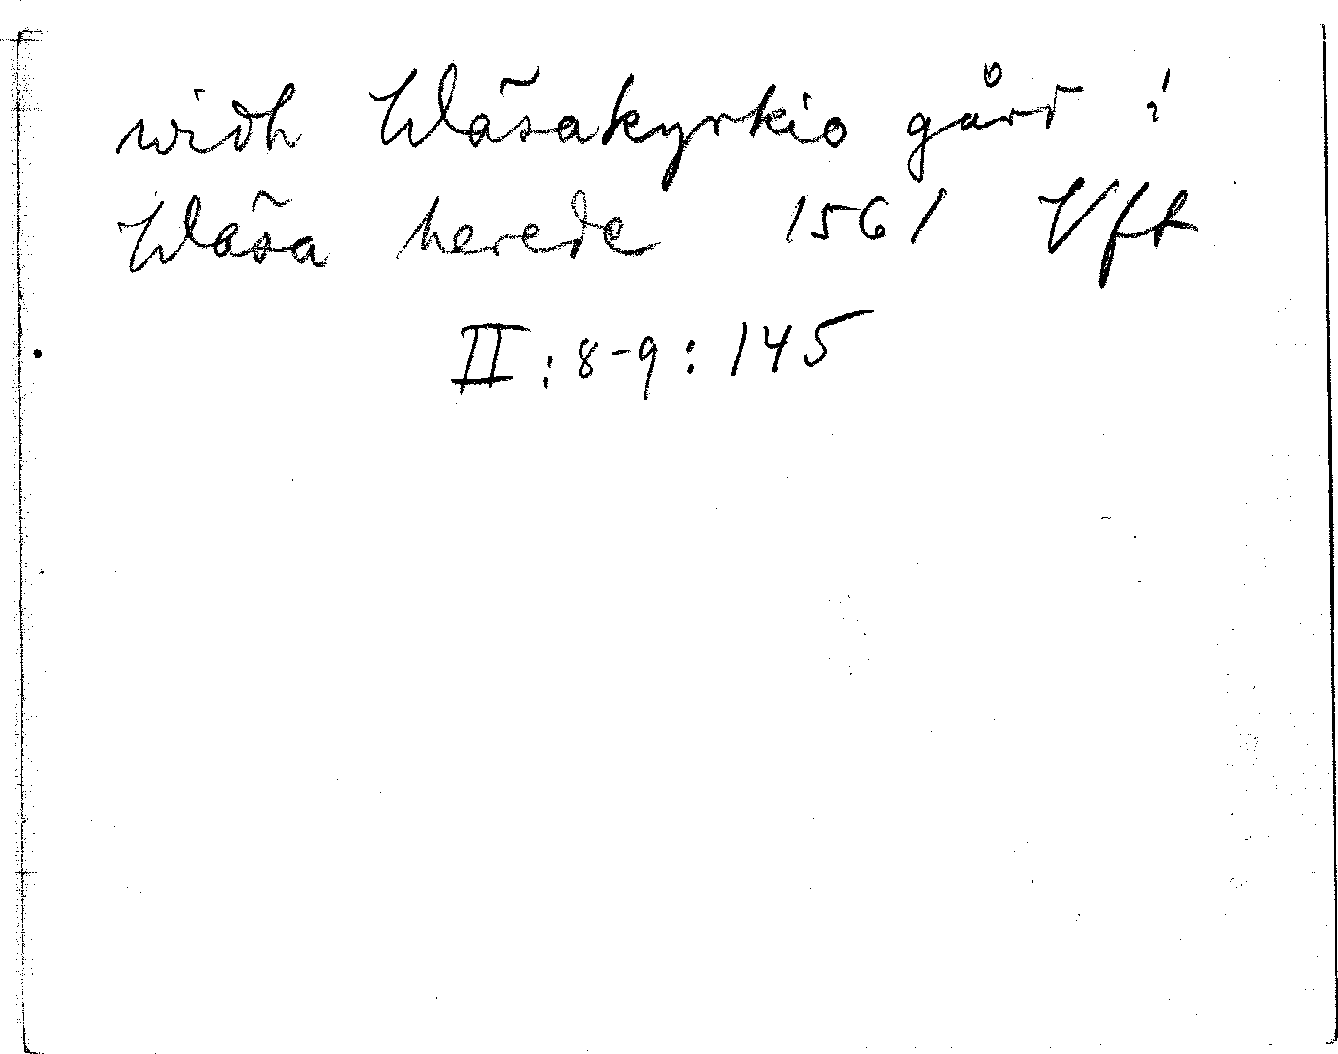 widh Wlãsakyrkio gård i
Wlãsa herede 1561 Vft
II:8-9:145